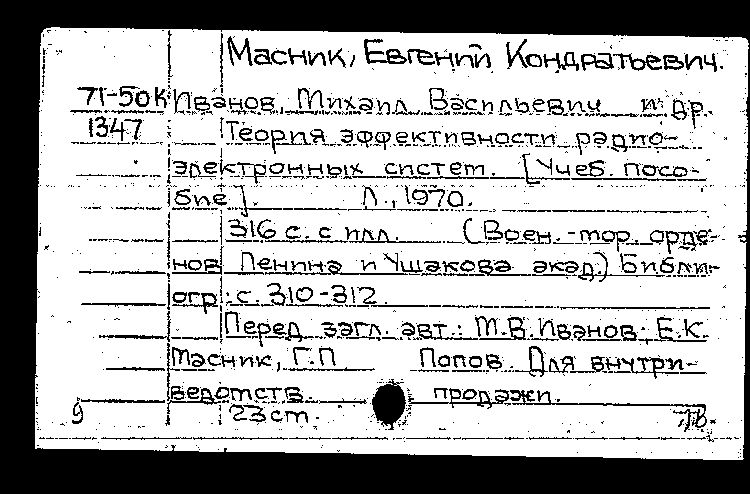 Масник, Евгений Кондратьевич.
71-50к Иванов, Михаил Васильевич и др.
1347 Теория эффективности радио-
электронных систем. [Учеб. посо-
бие]. Л., 1970.
316 с. с илл. (Воен.-мор. орде-
нов Ленина и Ушакова акад.) Библи-
огр: с. 310-312.
Перед загл. авт.: М.В.Иванов, Е.К.
Масник, Г.П Попов. Для внутри-
ведомств. продажи.
9 23 ст.